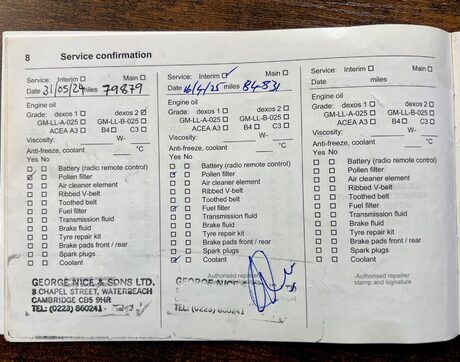 8 Service confirmation
Service: Interim Main
Date 31/05/24 miles 79879
Engine oil
Grade: dexos 1 dexos 2
GM-LL-A-025 GM-LL-B-025
ACEA A3 B4 C3
Viscosity: W-
Anti-freeze, coolant °C
Yes No
Battery (radio remote control)
Pollen filter
Air cleaner element
Ribbed V-belt
Toothed belt
Fuel filter
Transmission fluid
Brake fluid
Tyre repair kit
Brake pads front / rear
Spark plugs
Coolant
GEORGE NICE & SONS LTD.
8 CHAPEL STREET, WATERBEACH
CAMBRIDGE CB5 9HR
TEL: (0223) 860241
Service: Interim Main
Date 16/4/25 miles 84831
Engine oil
Grade: dexos 1 dexos 2
GM-LL-A-025 GM-LL-B-025
ACEA A3 B4 C3
Viscosity: W-
Anti-freeze, coolant °C
Yes No
Battery (radio remote control)
Pollen filter
Air cleaner element
Ribbed V-belt
Toothed belt
Fuel filter
Transmission fluid
Brake fluid
Tyre repair kit
Brake pads front / rear
Spark plugs
Coolant
Authorised repairer
GEORGE NICE &
8 CHAPEL STREET,
TEL: (0223) 860241
Service: Interim Main
Date miles
Engine oil
Grade: dexos 1 dexos 2
GM-LL-A-025 GM-LL-B-025
ACEA A3 B4 C3
Viscosity: W-
Anti-freeze, coolant °C
Yes No
Battery (radio remote control)
Pollen filter
Air cleaner element
Ribbed V-belt
Toothed belt
Fuel filter
Transmission fluid
Brake fluid
Tyre repair kit
Brake pads front / rear
Spark plugs
Coolant
Authorised repairer
stamp and signature